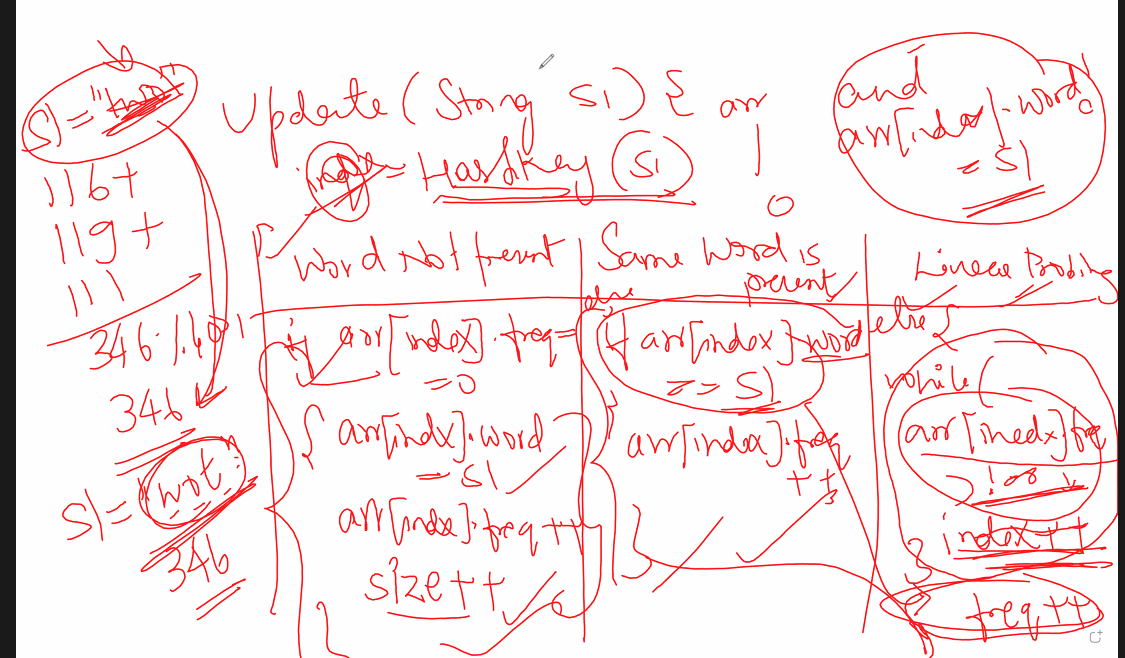 S1 = "two"
116+
119+
111
346 % 401
346
S1 = "wot"
346
Update (String S1) { arr
index = Hashkey (S1)
0
and
arr[index].word
= S1
Word Not present
if arr[index].freq =
= 0
{ arr[indx].word
= S1
arr[indx].freq ++
size++
}
Same Word is
present
else
if arr[index].word
== S1
arr[index].freq
++
}
Linear Probing
else {
while (
arr[inedx].freq
index++
}
freq++